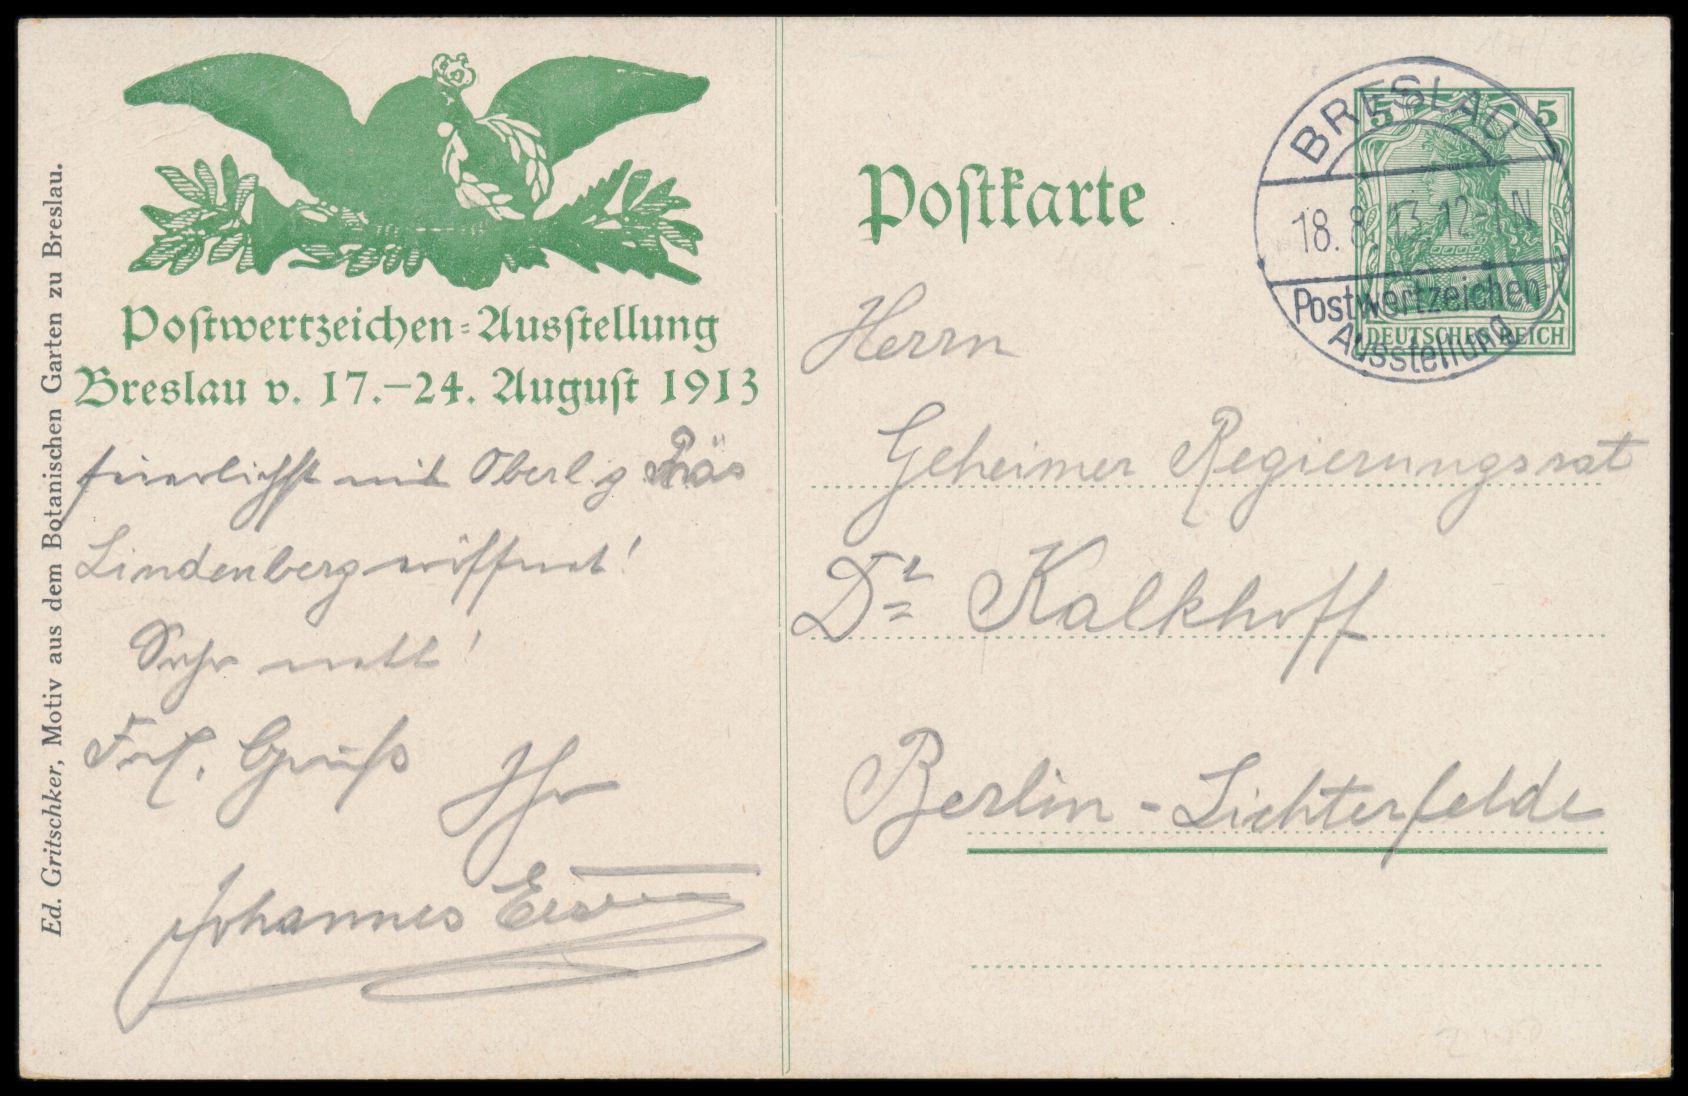 Postwertzeichen=Ausstellung
Breslau v. 17.–24. August 1913
Ed. Gritschker, Motiv aus dem Botanischen Garten zu Breslau.
feierlichst mit
Lindenberg eröffnet!
Sehr nett!
Frl. Gruß
Ihr
Johannes
Postkarte
BRESLAU
18. 8. 13. 12-1 N
Postwertzeichen-
Ausstellung
5 5
DEUTSCHES REICH
Herrn
Geheimer Regierungsrat
Dr Kalkhoff
Berlin-Lichterfelde